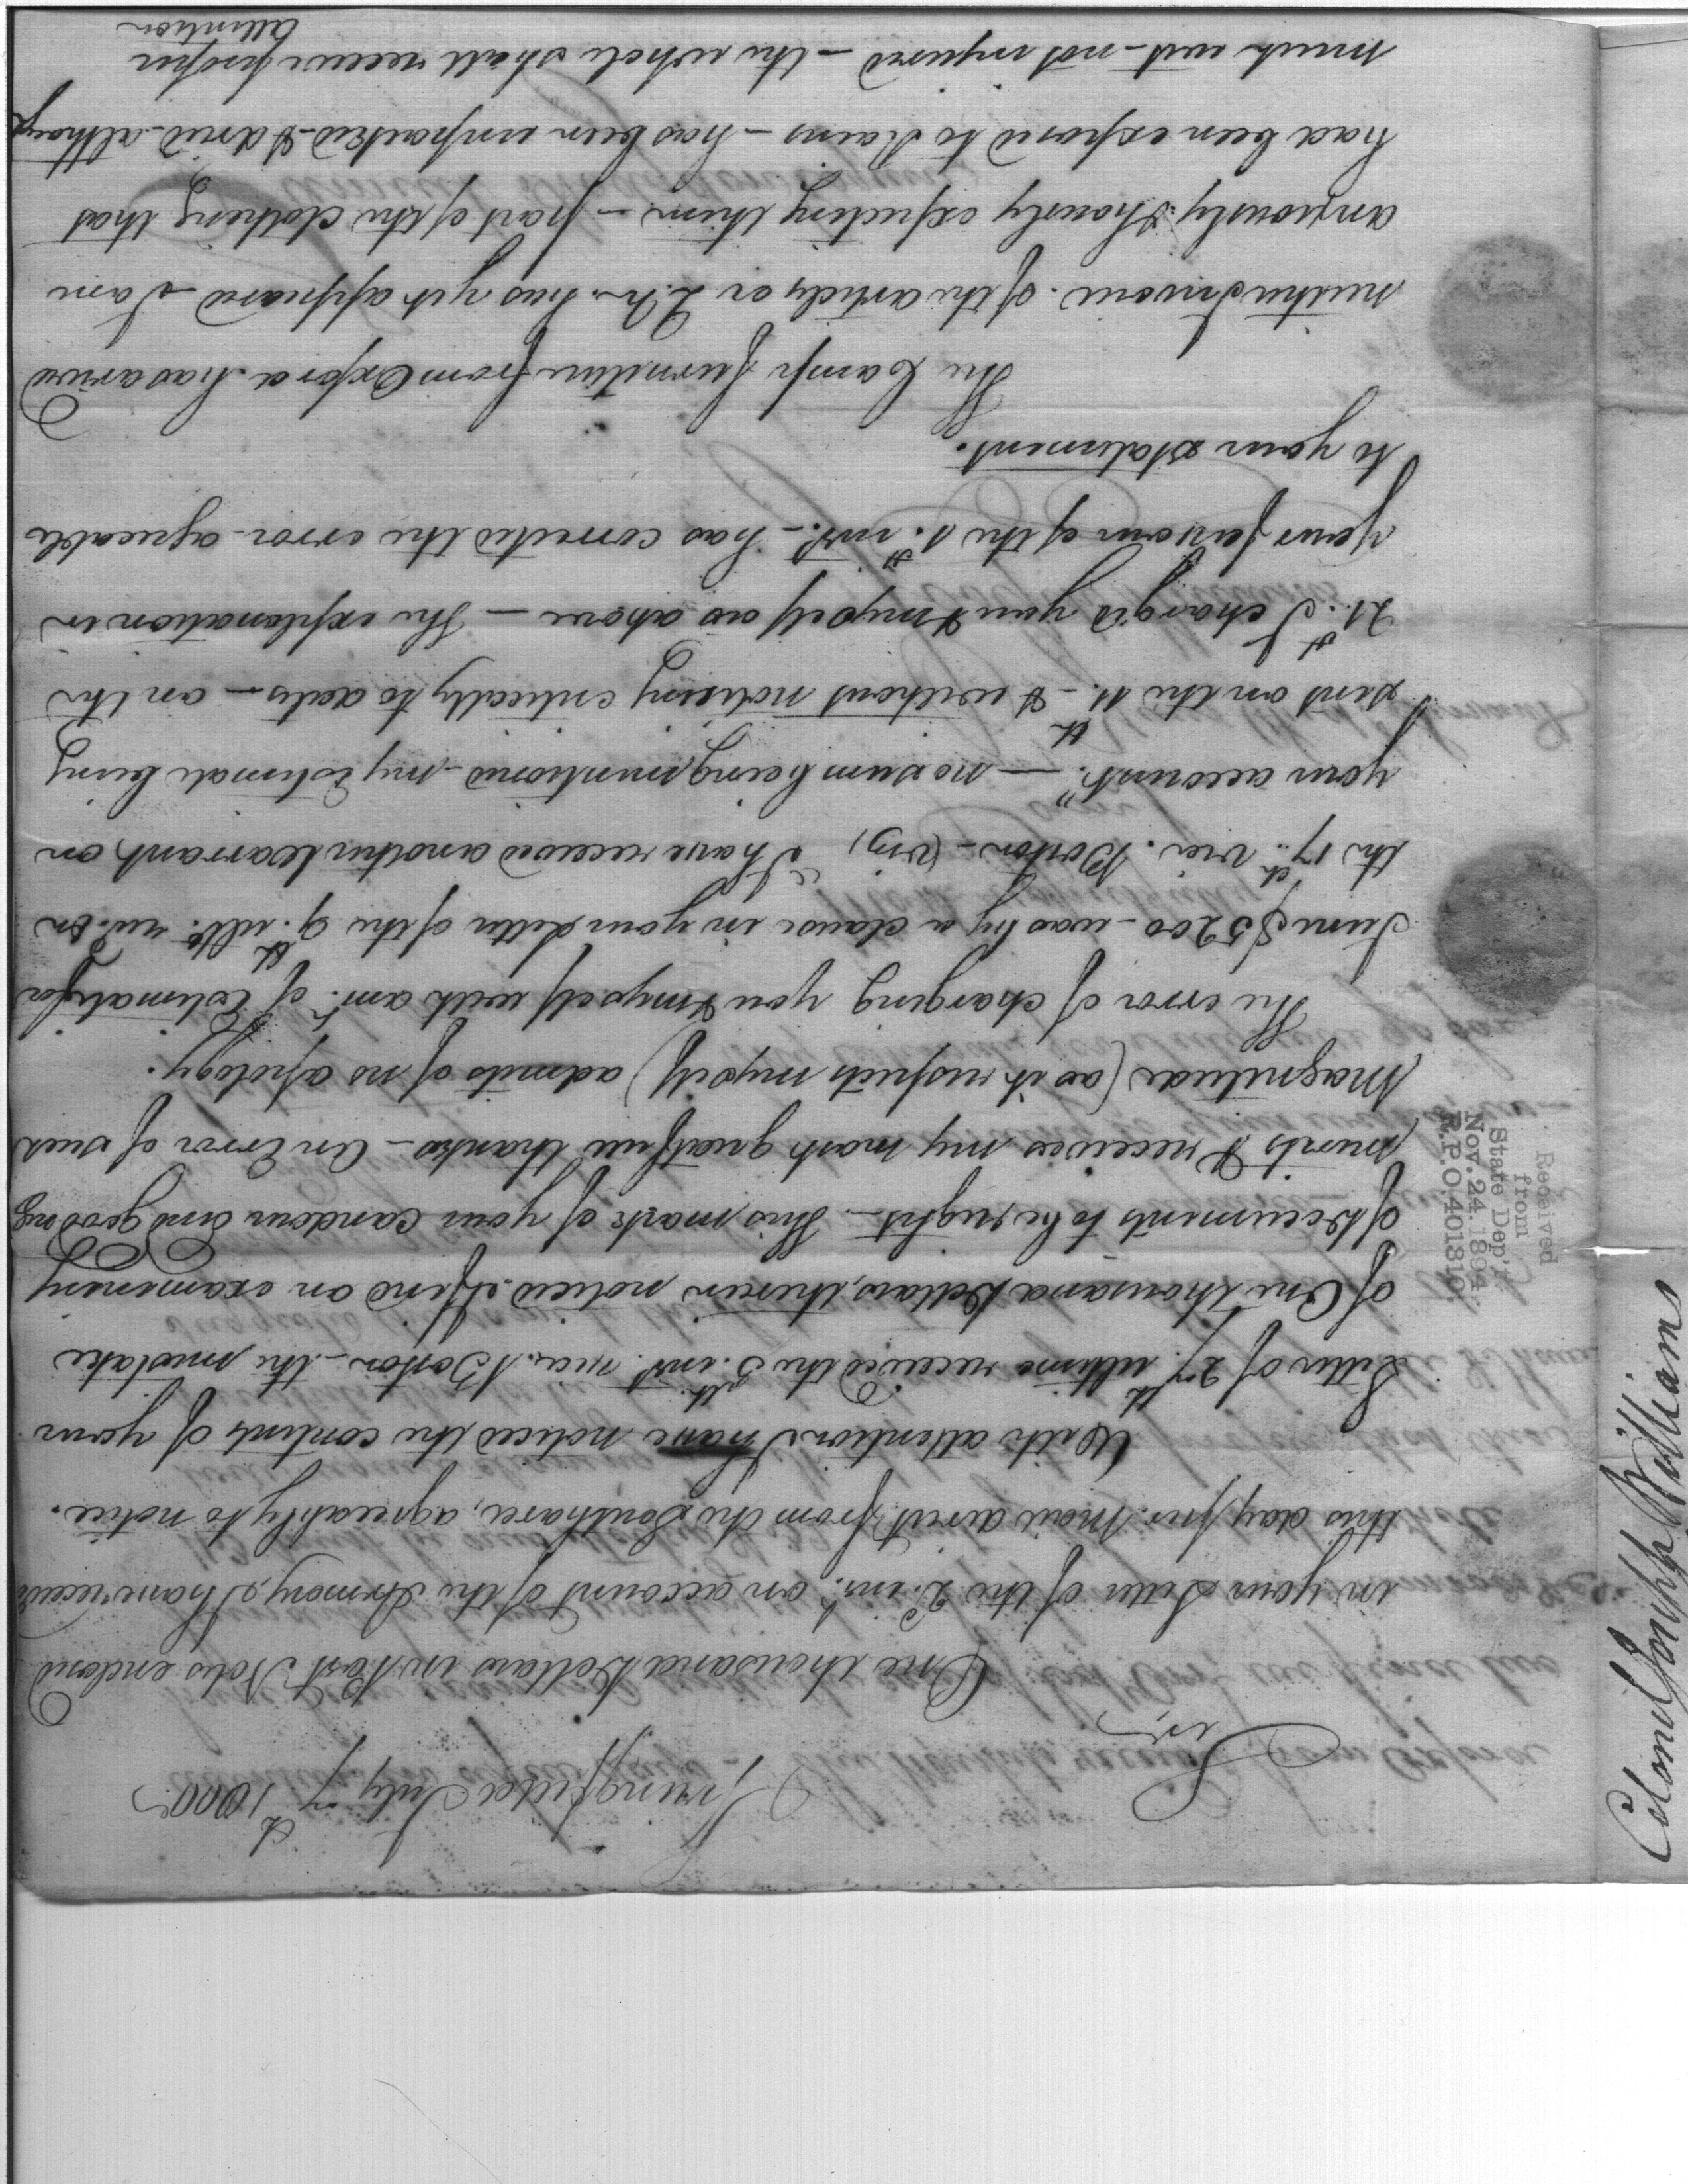 Springfield July 7th 1800
Sir,
One thousand Dollars in Post Notes enclosed
in your Letter of the 2d. inst. on account of the Armory, I have received
this day per. Mail direct from the Southard, agreeably to notice.
With attention I have noticed the contents of your
Letter of 27th ultimo received the 5th. inst. via. Boston - the mistake
of One thousand Dollars, therein noticed I find on examening
of Documents to be right - This mark of your candour and goodng
merits & receives my most greatfull thanks - An Error of such
Magnitude (as it respects myself) admits of no apology.
The error of charging you & myself with amt. of Estimate for
June $5200 - was by a clause in your Letter of the 9th. ulto. recd. on
the 17th via. Boston - (viz) "I have received another Warrant on
your account" — no sum being mentioned - my Estimate being
sent on the 11th. - & without noticing critically to dates - on the
21st. I charg'd you & myself as above — The explanation in
your favour of the 1st. inst. - has corrected the error agreeable
to your statement.
The Camp furniture from Oxford has arived
neither Invoice of the articles or L.h. has yet appeared I am
anxiously & hourly expecting them - part of the clothing that
had been exposed to Rains - has been unpacked & dried - althoug
much wet - not injured - the whole shall receive proper
attention
Received
from
State Dep't.
Nov. 24. 1894.
R.P.O. 401810.
Colonel Jonathn Williams